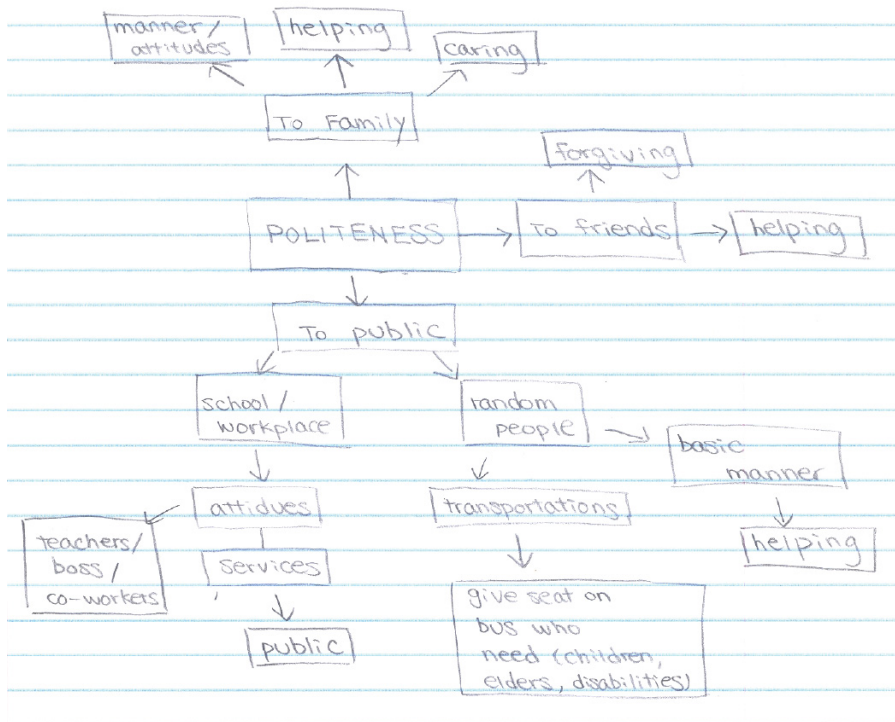 manner/
attitudes
helping
caring
To Family
forgiving
POLITENESS
To friends
helping
To public
school /
workplace
random
people
basic
manner
attidues
transportations
helping
teachers/
boss /
co-workers
services
give seat on
bus who
need (children,
elders, disabilities)
public